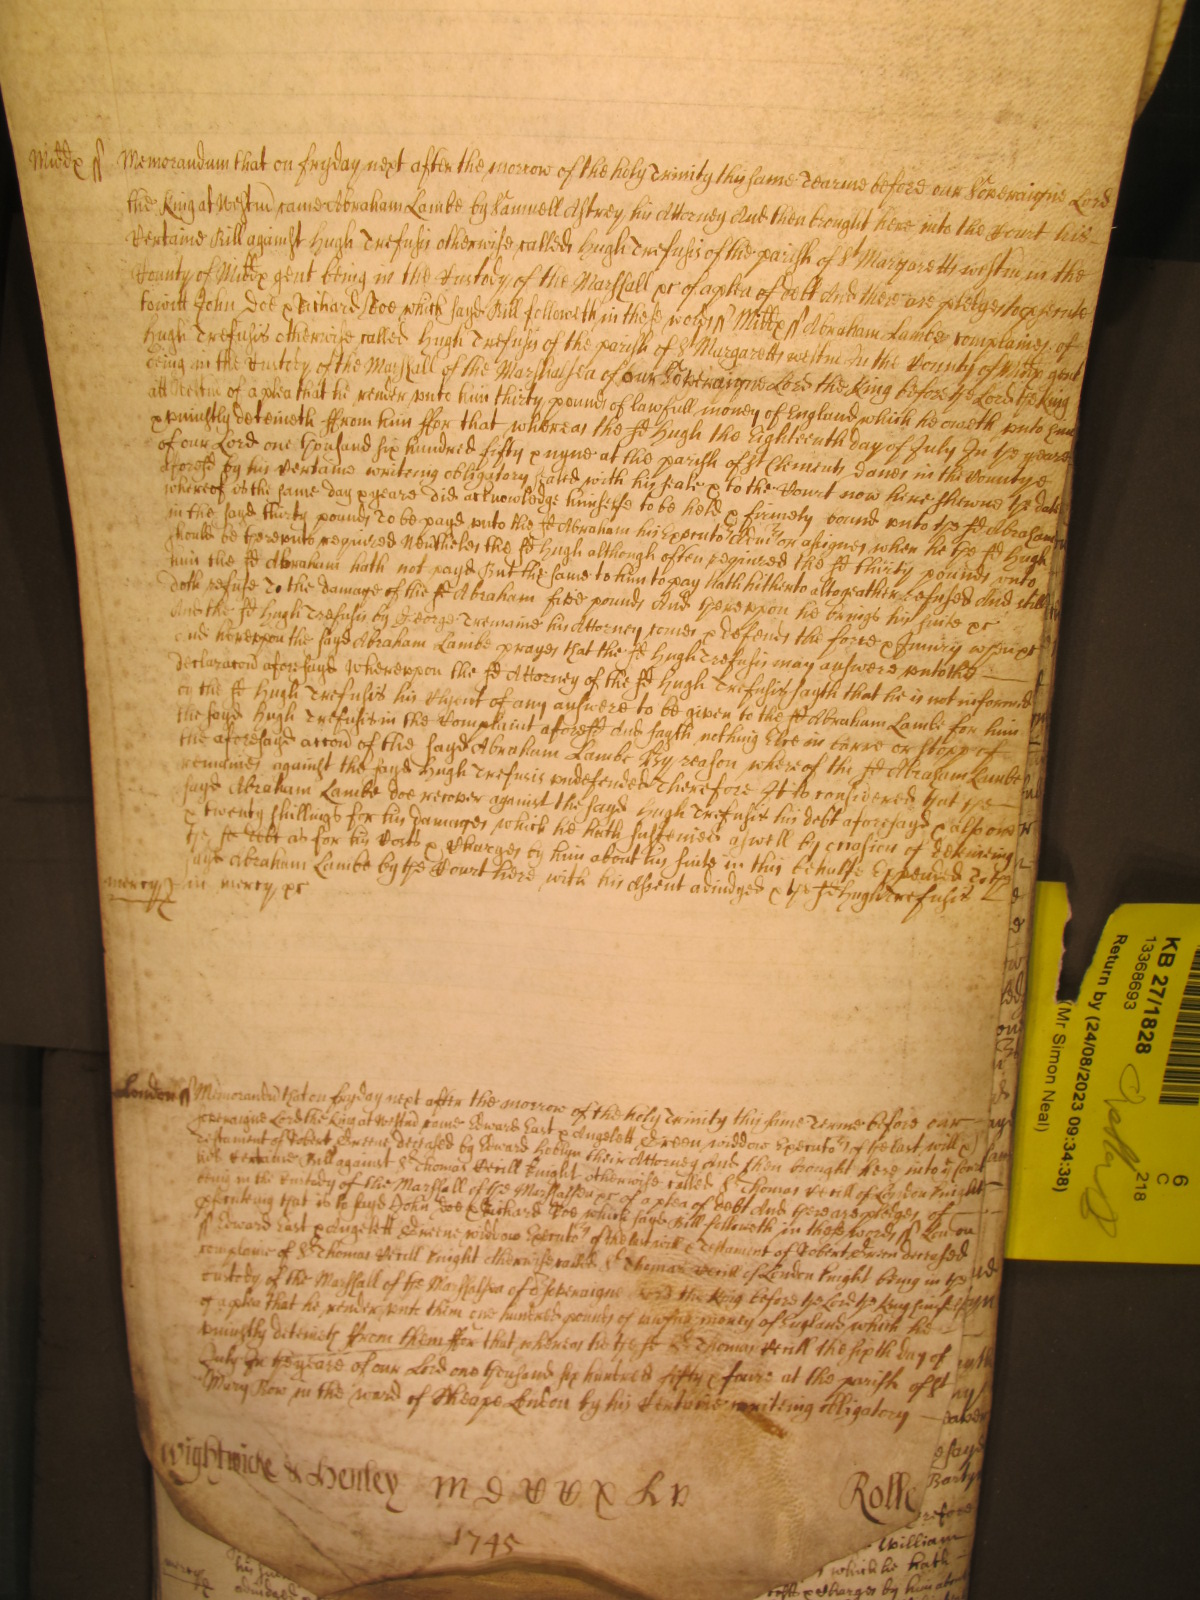 Middx ss Memorandum that on fryday next after the morrow of the holy Trinity this same Tearme before our Soveraigne Lord
the King at Westm̄ came Abraham Lambe by Samuell Astrey his Attorney And then brought here into the Court his
Certaine Bill against Hugh Trefusis otherwise called Hugh Trefusis of the parish of St Margaretts westm̄ in the
County of Middx gent being in the Custody of the Marshall &c of a plea of debt And there are pledges to prosecute
towitt John Doe & Richard Roe which sayd Bill followeth in these words ss Middx ss Abraham Lambe complaines of
Hugh Trefusis otherwise called Hugh Trefusis of the parish of St Margaretts westm̄ in the County of Middx gent
being in the Custody of the Marshall of the Marshalsea of our Soveraigne Lord the King before ye Lord the King
att Westm̄ of a plea that he render unto him thirty pounds of lawfull money of England which he oweth unto him
& uniustly deteineth ffrom him ffor that whereas the sd Hugh the Eighteenth day of July In the yeare
of our Lord one thousand six hundred fifty & nyne at the parish of St Clements Danes in the County
aforesd by his Certaine writeing obligatory sealed with his seale & to the Court now here shewne the date
whereof is the same day & yeare did acknowledge himselfe to be held & firmely bound unto the sd Abraham
in the sayd thirty pounds To be payd unto the sd Abraham his Executors Admrs or assignes when he the sd Hugh
should be thereunto required Neverthelesse the sd Hugh although often required the sd thirty pounds unto
him the sd Abraham hath not payd But the same to him to pay hath hitherto altogeather refused And still
doth refuse To the damage of the sd Abraham five pounds And thereupon he brings his suite &c
And the sd Hugh Trefusis by George Tremaine his Attorney comes & defends the force & Iniury when &c
And hereuppon the sayd Abraham Lambe prayes that the sd Hugh Trefusis may answere unto the
declaracon aforesayd Whereuppon the sd Attorney of the sd Hugh Trefusis sayth that he is not informed
by the sd Hugh Trefusis his Client of any answere to be given to the sd Abraham Lambe for him
the sayd Hugh Trefusis in the Complaint aforesd And sayth nothing Else in barre or stopp of
the aforesayd accon of the sayd Abraham Lambe By reason whereof the sd Abraham Lambe
remaines against the sayd Hugh Trefusis undefended Therefore It is considered that the
sayd Abraham Lambe doe recover against the sayd Hugh Trefusis his debt aforesayd & also
& twenty shillings for his damages which he hath susteined aswell by occasion of deteining
the sd debt as for his Costs & Charges by him about his suite in this behalfe Expended To the
sayd Abraham Lambe by the Court here with his Assent adiudged & the sd Hugh Trefusis
mercy in mercy &c
London ss Memorandum that on fryday next after the morrow of the holy Trinity this same Terme before our
soveraigne Lord the King at Westm̄ came Edward East & Angelett Greene widdow Executors of the last will &
Testament of Robert Greene deceased by Edward their Attorney And then brought here into ye Court
their Certaine Bill against Sr Thomas Verill Knight otherwise called Sr Thomas Verill of London Knight
being in the Custody of the Marshall of the Marshalsea &c of a plea of debt And there are pledges of
prosecuting that is to sayd John Doe & Richard Roe which sayd Bill followeth in these words ss London
ss Edward East & Angelett Greene widdow Executors of the last will & Testament of Robert Green deceased
complaine of Sr Thomas Verill Knight otherwise called Sr Thomas Verill of London Knight being in the
custody of the Marshall of the Marshalsea of or Soveraigne Lord the King before the Lord the King himselfe
of a plea that he render unto them one hundred pounds of lawfull money of England which he
uniustly deteineth ffrom them ffor that whereas he the sd Sr Thomas Verill the sixth day of
July In the yeare of our Lord one thousand six hundred fifty & foure at the parish of St
Mary Bow in the ward of Cheape London by his Certaine writeing obligatory
Wightwicke & Henley M D C C X L V Rolle
1745
William
which he hath
& Charges by him about
KB 27/1828
13368693
Return by (24/08/2023 09:34:38)
(Mr Simon Neal)
6
C
218